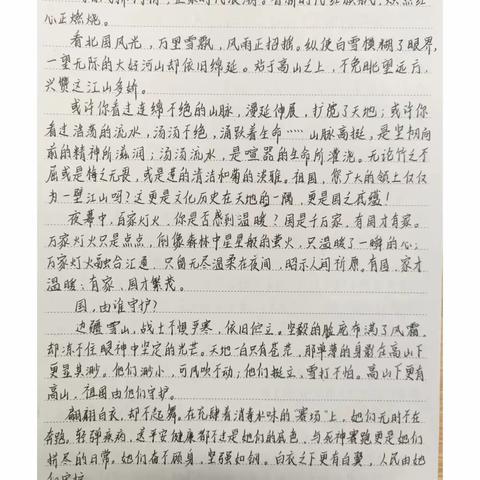 心正燃烧。
看北国风光，万里雪飘，风雨正招摇。纵使白雪模糊了眼界，
一望无际的大好河山却依旧绵延。站于高山之上，不免眺望远方，
兴赞这江山多娇。
或许你看过连绵不绝的山脉，漫延伸展，打破了天地；或许你
看过浩荡的流水，汤汤不绝，涌跃着生命……山脉高挺，是坚韧向
前的精神所滋润；汤汤流水，是喧嚣的生命所灌浇。无论竹之不
屈或是梅之无畏，或是莲的清洁和菊的淡雅。祖国，您广大的领土仅仅
为一壁江山吗？这更是文化历史在天地的一隅，更是国之底蕴！
夜幕中，万家灯火，你是否感到温暖？国是千万家，有国才有家。
万家灯火只是点点，削像森林中星星般的萤火，只温暖了一瞬的心；
万家灯火融合汇通，只留无尽温柔在夜间，昭示人间祈愿。有国，家才
温暖；有家，国才繁茂。
国，由谁守护？
边疆雪山，战士不惧严寒，依旧伫立。坚毅的脸庞布满了风霜，
却冻不住眼神中坚定的光芒。天地一白只有苍茫，那单薄的身影在高山下
更显其渺。他们渺小，可风吹不动；他们挺立，雪打不怕。高山下更有
高山，祖国由他们守护。
翩翩白衣，却不起舞。在充肆着消毒水味的“赛场”上，她们无时不在
奔跑。轻碎疾病，送平安健康都不过是她们的底色，与死神赛跑更是她们
拼尽的日常。她们奋不顾身，坚强如钢。白衣之下更有白翼，人民由她
们守护。